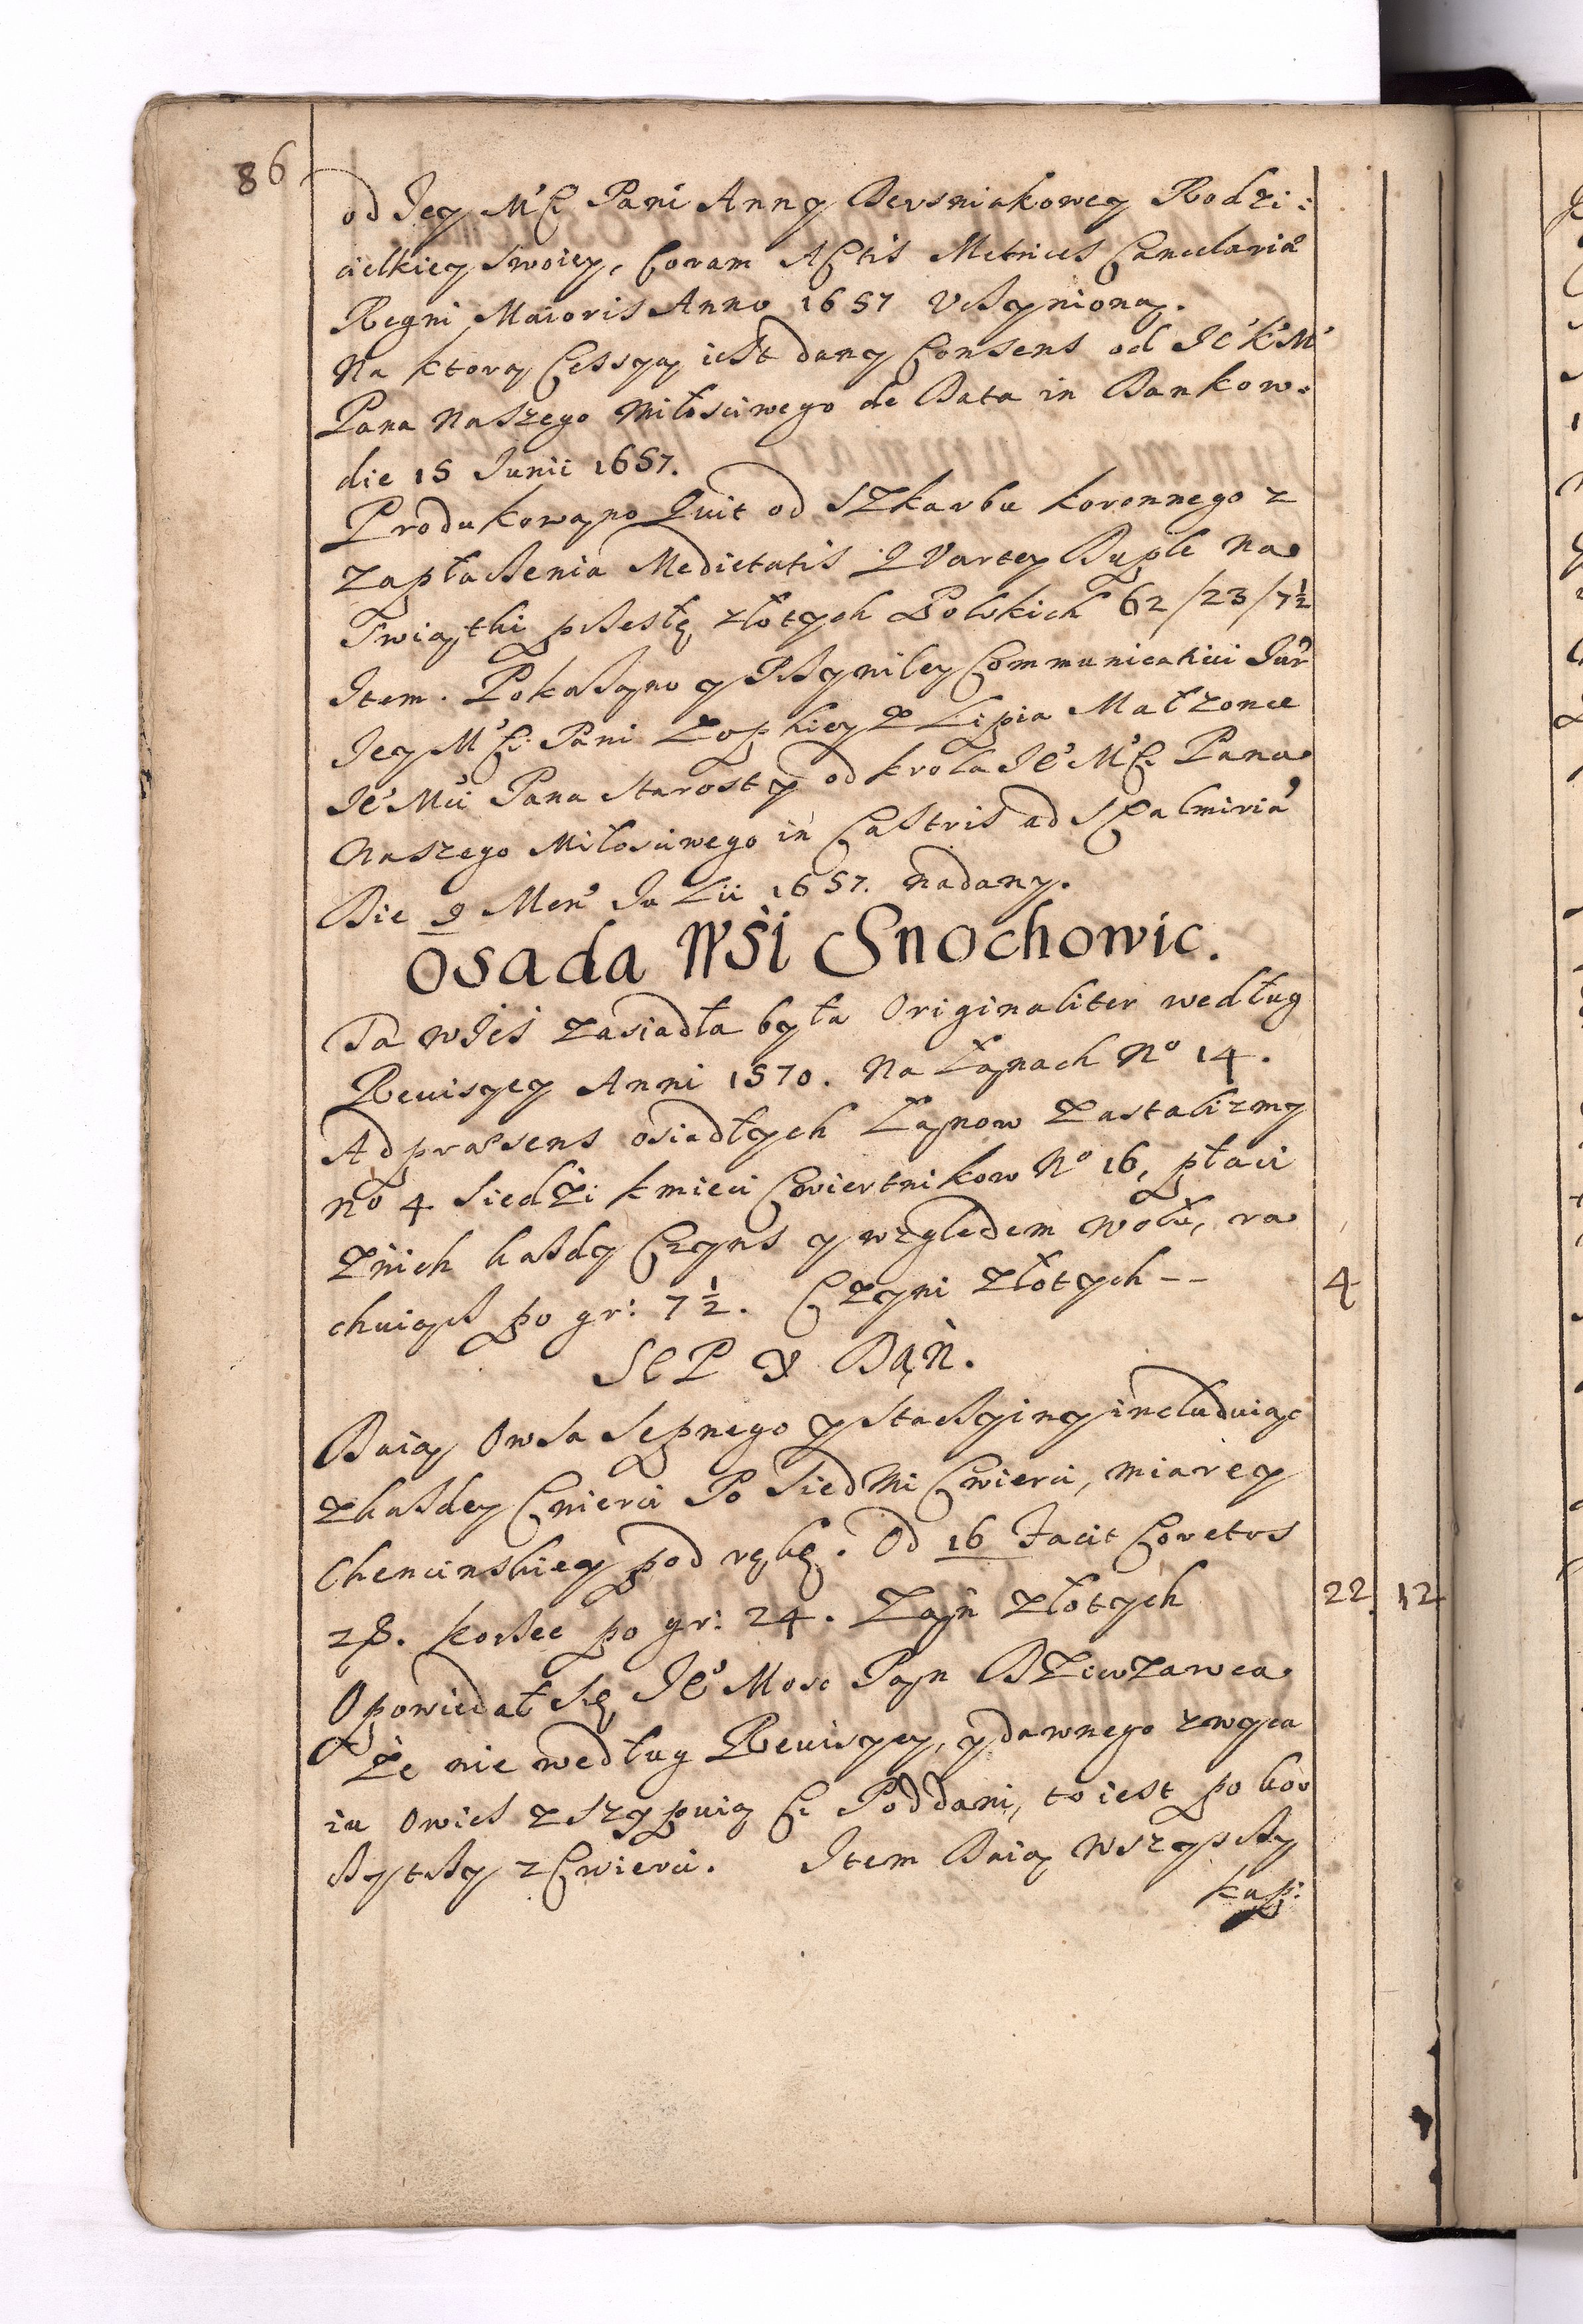 86
od Jey Mći Pani Anny Bersniakowey Rodzi:
cielkiey swoiey, Coram Actis Metrices Cancelariæ
Regni Maioris Anno 1657 Uczynioną.
Na ktorą Cessyą iest dany Consens od Je° K° M°
Pana Naszego Miłosciwego de Data in Dankow.
die 15 Junii 1657.
Produkowano Quit od Szkarbu koronnego z
zapłacenia Medietatis Quartey Duple Na
Swiątki przeszłę złotych Polskich 62/23/7½
Item. Pokazano y Przywiley Communicativi Jur°
Jey Mći Pani Zophiey z Lipia Małzonce
Je° Mći Pana Starosty od krola Je° Mći Pana
Naszego Miłosciwego in Castris ad Scalmiria°
Die 9 Men° Julii 1657. nadany.
Osada WSi Snochowic.
Ta wies zasiadła była Originaliter według
Rewisyey Anni 1570. Na Łanach N° 14.
Ad præsens osiadłych Łanow zastalizmy
N° 4 Siedzi kmieci Cwiertnikow N° 16, płaci
znich kazdy Czyns y względem wołu, ra
chuiąc po gr: 7½. Czyni złotych -- 4
SeP y Dań.
Daią Owsa Sepnego y Stacyiny includuiąc
z kazdey Cwierci Po Siedmi Cwierci, miarey
Chencinskiey pod rękę. Od 16 Facit Coretos
28. Korzec po gr: 24. Zań złotych 22 12
Opowiedał się Je° Mosc Pan Dzierzawca
Ze nie według Rewisyey, y dawnego zwycza
iu Owies zszypuią Ci Poddani, to iest po kor
czyku z Cwierci. Item Daią Wszyscy
kap: